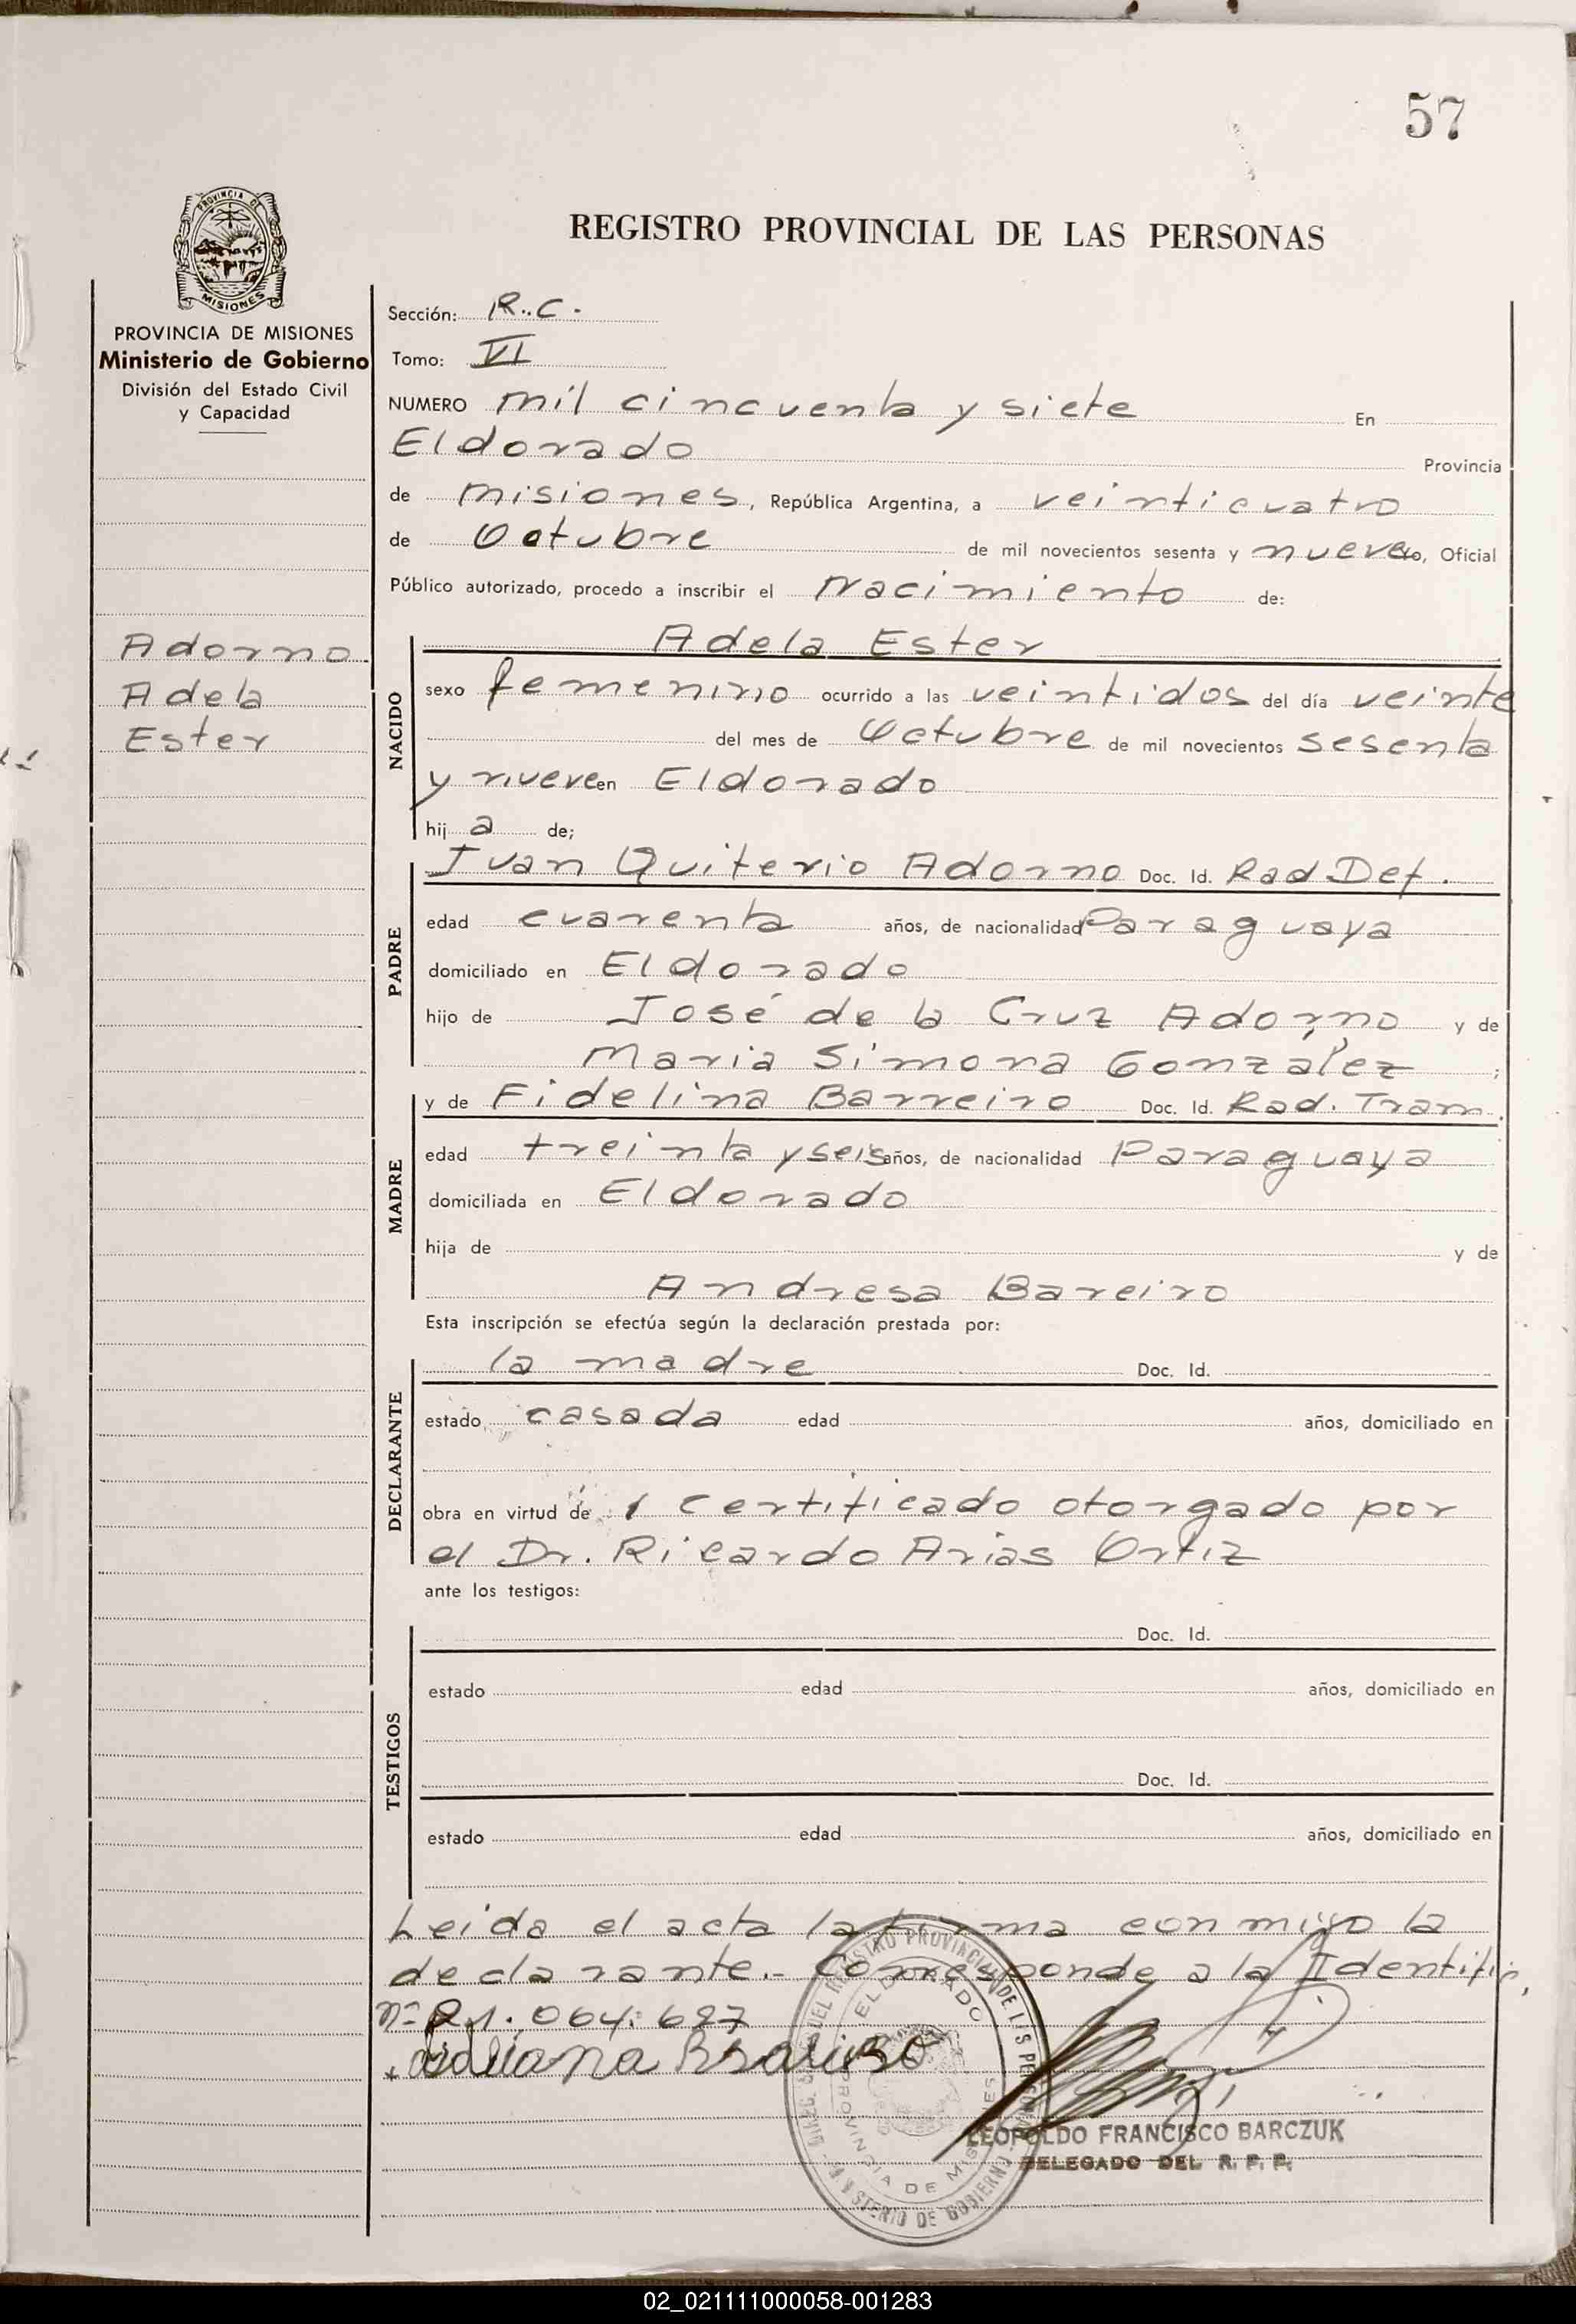 57
REGISTRO PROVINCIAL DE LAS PERSONAS
PROVINCIA DE
MISIONES
PROVINCIA DE MISIONES
Ministerio de Gobierno
División del Estado Civil
y Capacidad
Adorno
Adela
Ester
Sección: R.C.
Tomo: VI
NUMERO mil cincuenta y siete En
Eldorado Provincia
de misiones, República Argentina, a veinticuatro
de Octubre de mil novecientos sesenta y nueve yo, Oficial
Público autorizado, procedo a inscribir el Nacimiento de:
NACIDO
Adela Ester
sexo femenino ocurrido a las veintidos del día veinte
del mes de Octubre de mil novecientos sesenta
y nueve en Eldorado
hij a de;
PADRE
Juan Quiterio Adorno Doc. Id. Rad Def.
edad cuarenta años, de nacionalidad Paraguaya
domiciliado en Eldorado
hijo de José de la Cruz Adorno y de
Maria Simona González ;
MADRE
y de Fidelina Barreiro Doc. Id. Rad. Tram.
edad treinta y seis años, de nacionalidad Paraguaya
domiciliada en Eldorado
hija de y de
Andresa Bareiro
Esta inscripción se efectúa según la declaración prestada por:
DECLARANTE
la madre Doc. Id.
estado casada edad años, domiciliado en
obra en virtud de 1 Certificado otorgado por
el Dr. Ricardo Arias Ortiz
ante los testigos:
TESTIGOS
Doc. Id.
estado edad años, domiciliado en
Doc. Id.
estado edad años, domiciliado en
Leida el acta la firma conmigo la
declarante.- Corresponde a la Identific,
nº 21.064.687
REGISTRO PROVINCIAL DE LAS PERSONAS
ELDORADO
PROVINCIA DE MISIONES
MINISTERIO DE GOBIERNO
LEOPOLDO FRANCISCO BARCZUK
DELEGADO DEL R. P. P.
02_021111000058-001283